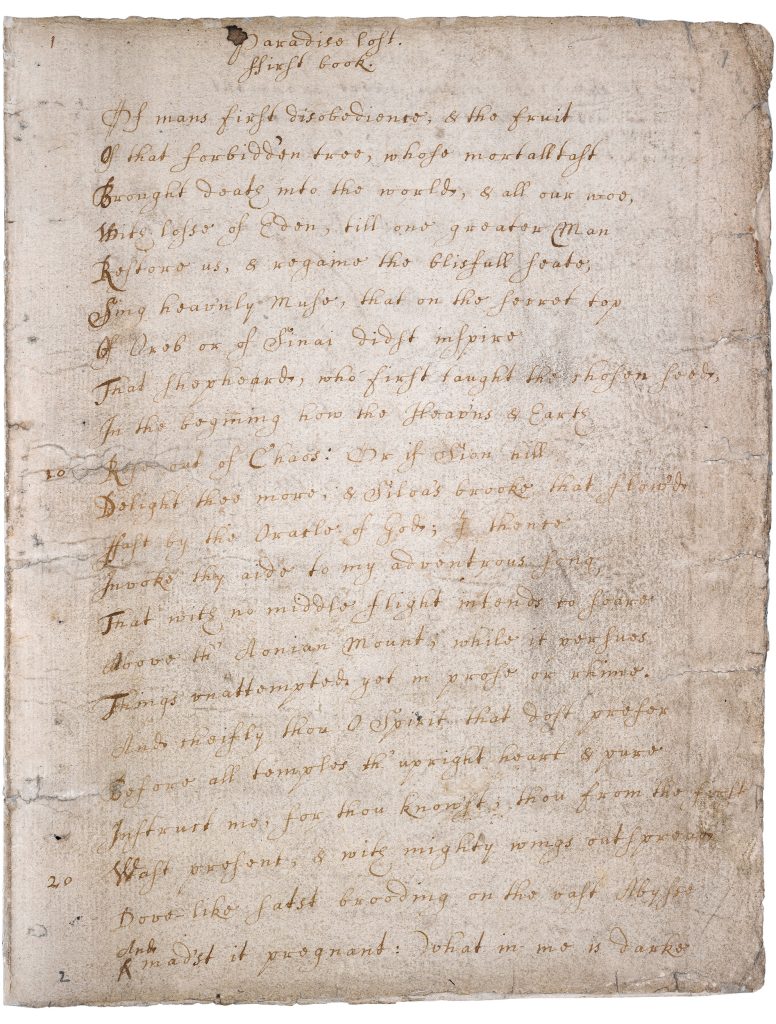 1
Paradise lost.
ffirst book.
Of mans first disobedience, & the fruit
Of that forbidd'en tree, whose mortall tast
Brought death into the world, & all our woe,
With losse of Eden, till one greater Man
Restore us, & regaine the blisfull seate,
Sing heav'nly Muse, that on the secret top
Of Oreb or of Sinai didst inspire
That shepheard, who first taught the chosen seed,
In the beginning how the Heav'ns & Earth
10 Rose out of Chaos: Or if Sion hill
Delight thee more, & Siloa's brooke that flow'd
ffast by the Oracle of God; I thence
Invoke thy aide to my adventrous song,
That with no middle flight intends to soare
Above th' Aonian Mount, while it persues
Things unattempted yet in prose or rhime.
And cheifly thou O Spirit that dost prefer
Before all temples th' upright heart & pure
Instruct me, for thou know'st; thou from the first
20 Wast present, & with mighty wings outspread
Dove-like satst brooding on the vast Abysse
And
mad'st it pregnant: What in me is darke
2